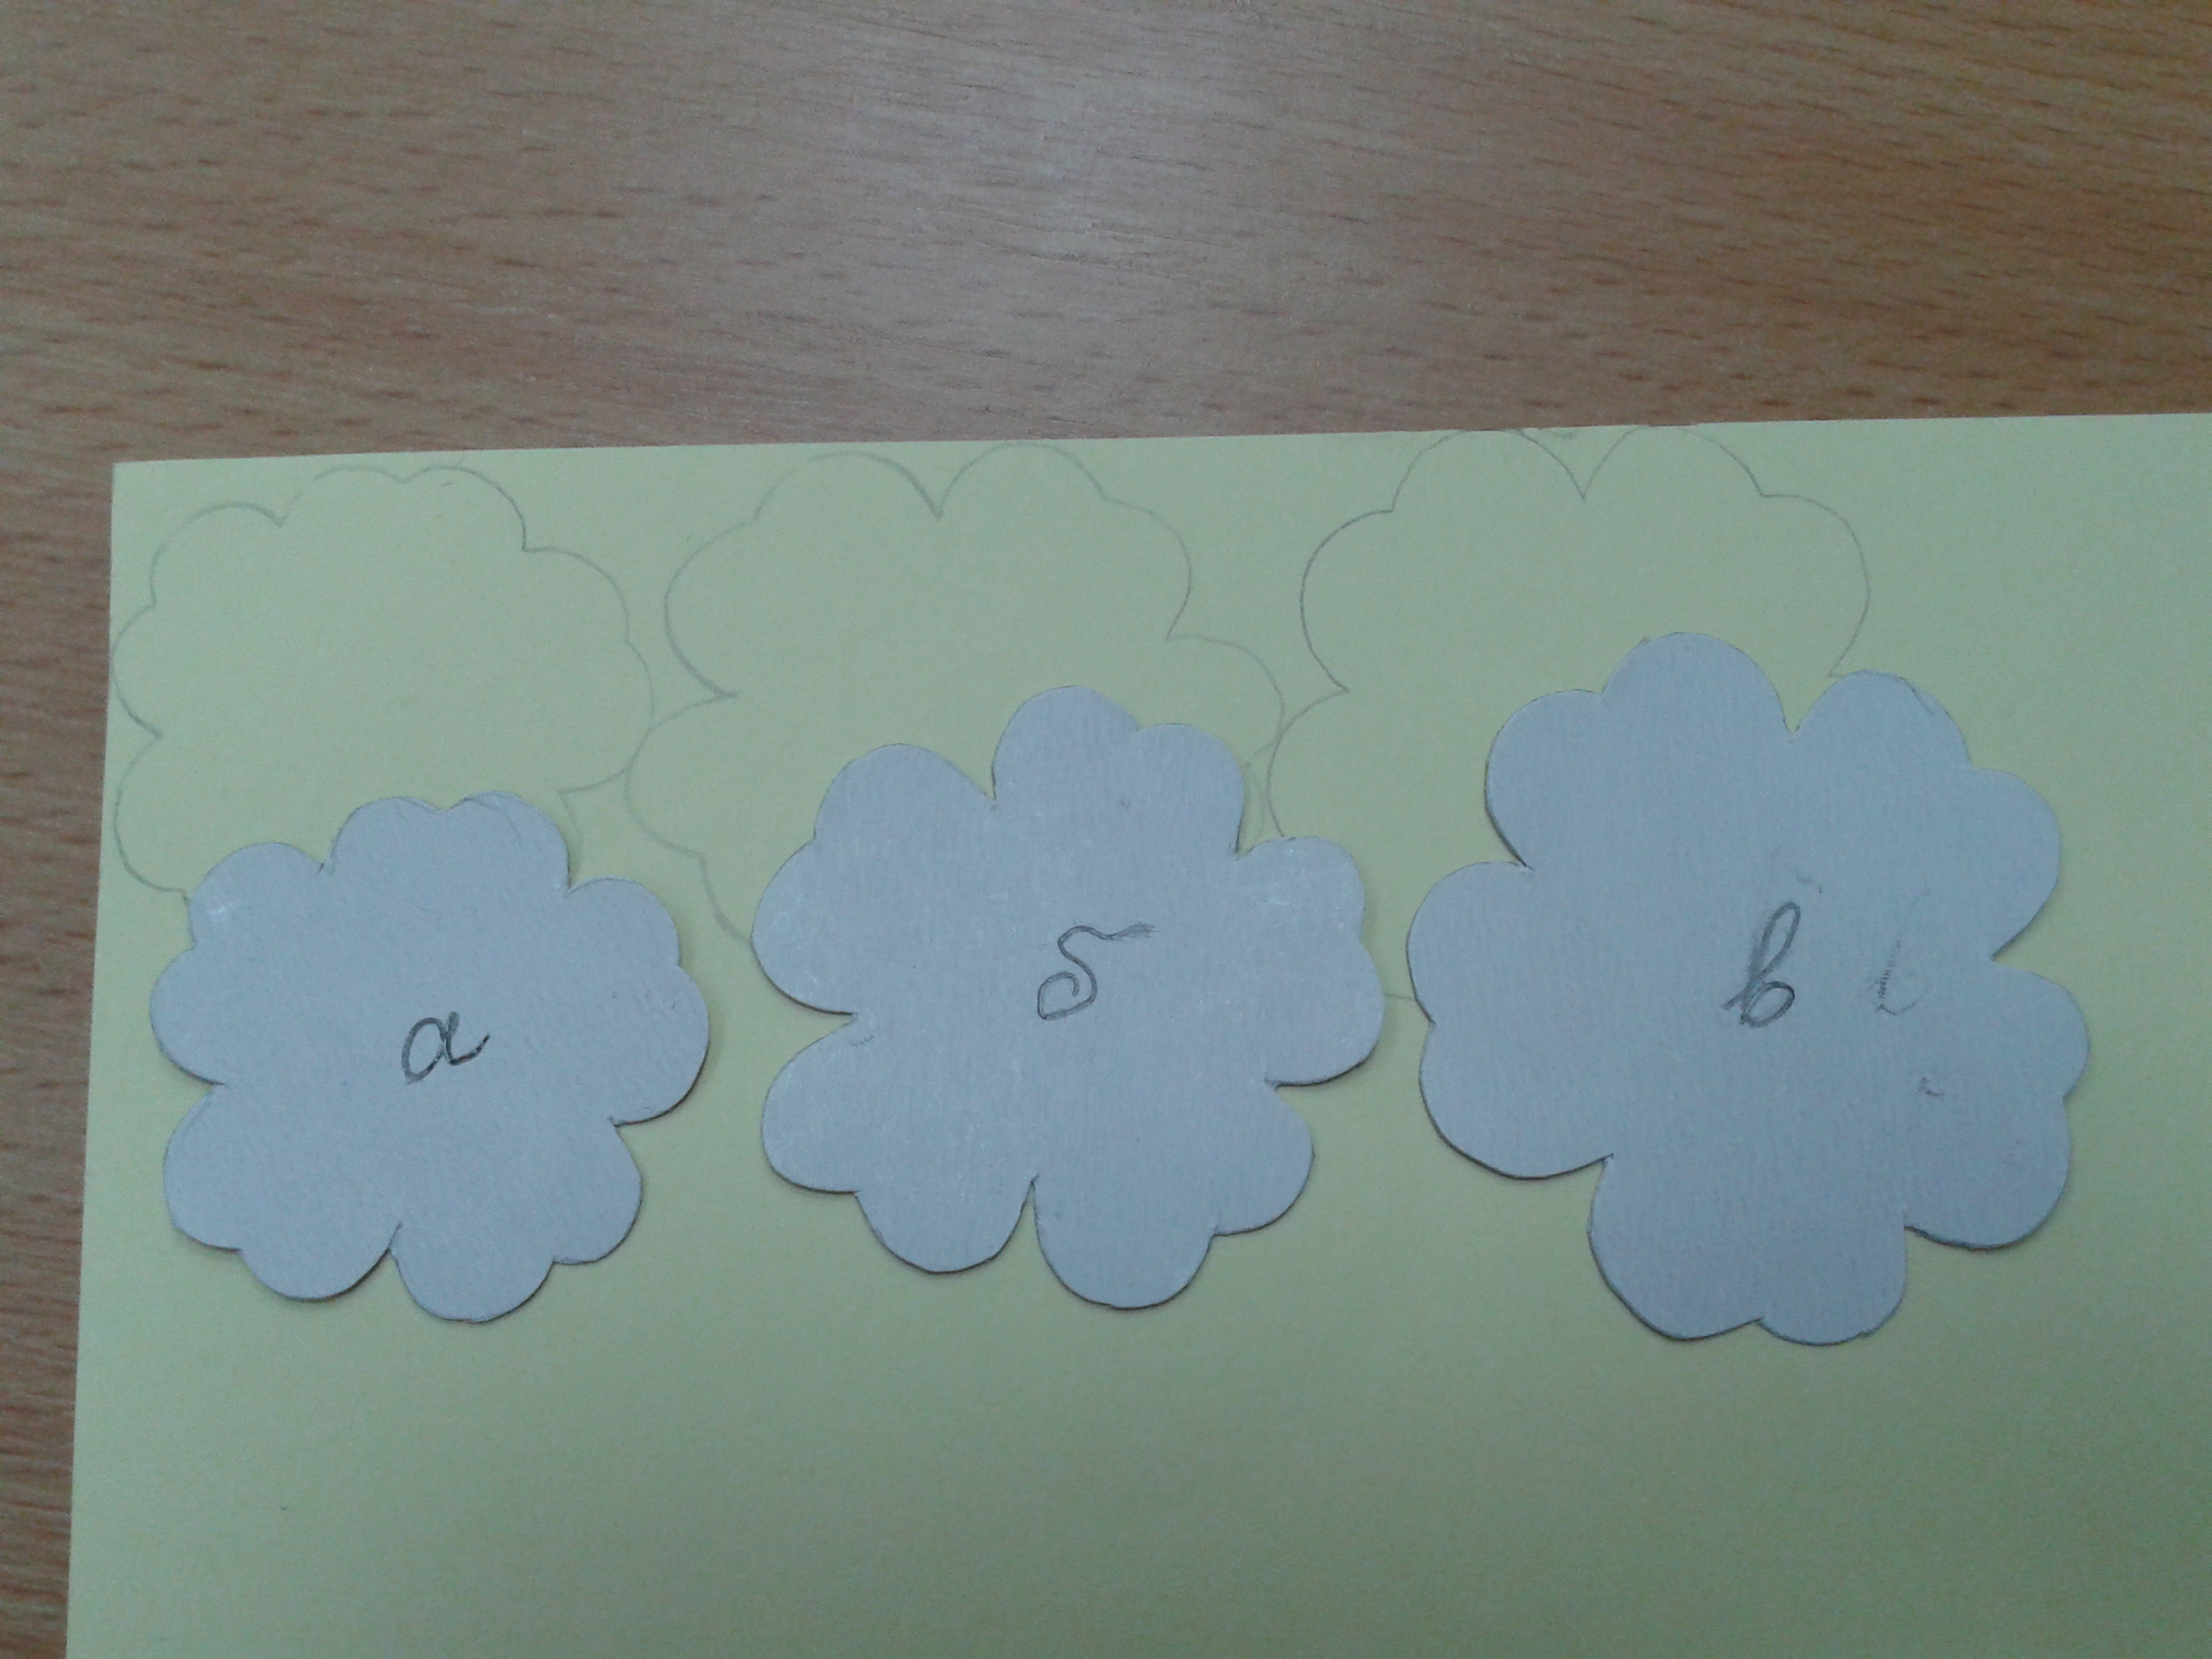 а б в